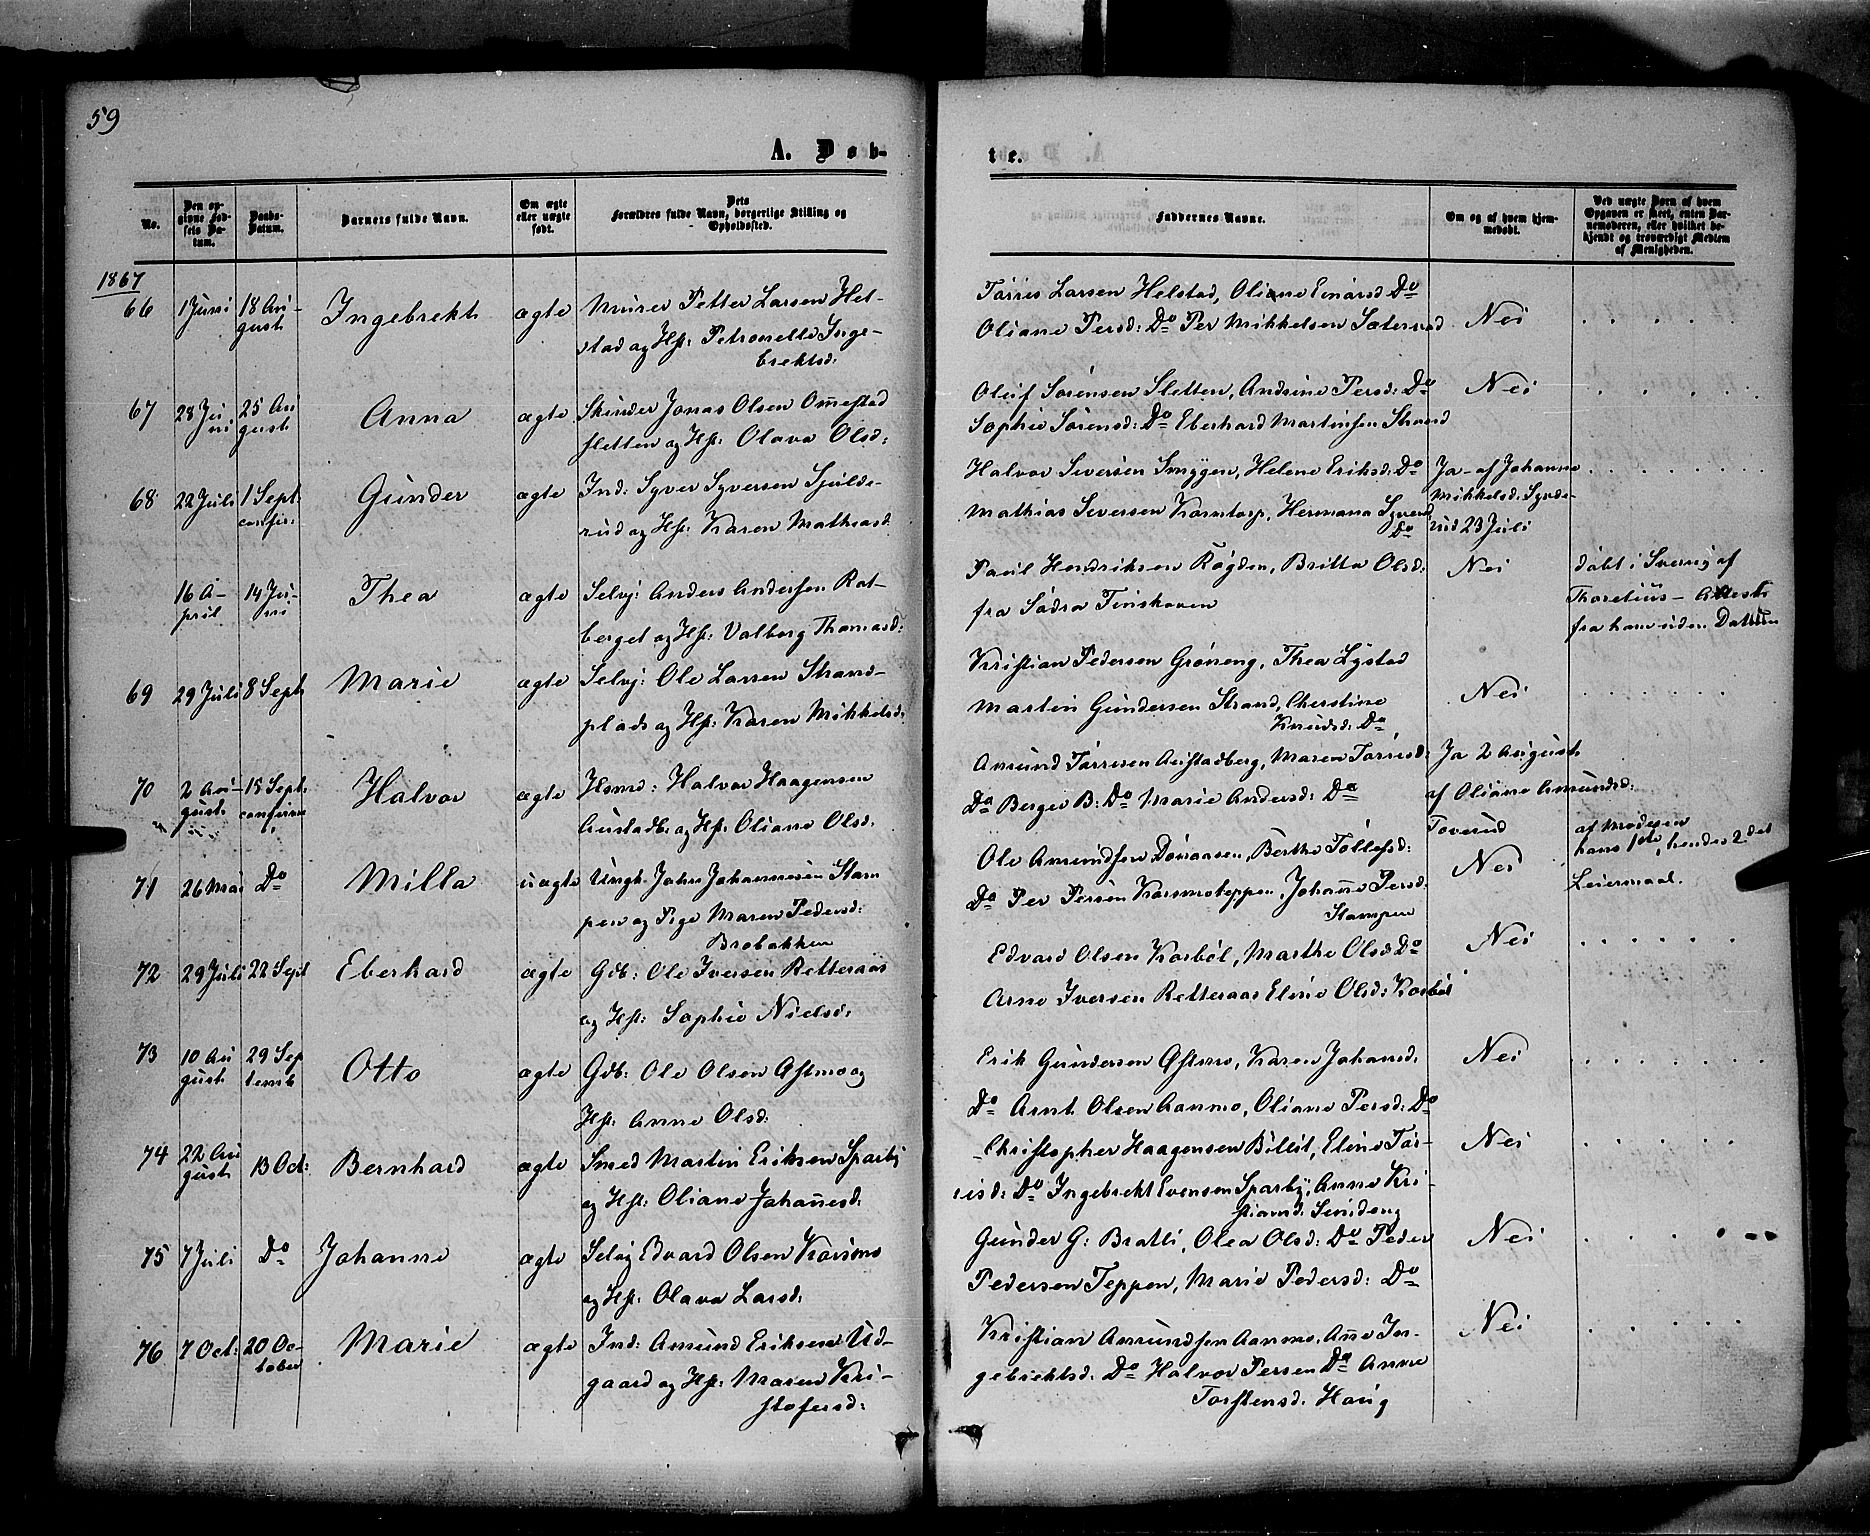 59
A. Døb-
te.
No.
Den op-
givne Fød-
sels Da-
tum.
Daabs-
Datum.
Barnets fulde Navn.
Om ægte
eller uægte
født.
Dets
Forældres fulde Navn, borgerlige Stilling og
Opholdssted.
Faddernes Navne.
Om og af hvem hjem-
medøbt.
Ved uægte Børn af hvem
Opgaven er skeet, enten Bar-
nemoderen, eller hvilket be-
kjendt og troværdigt Medlem
af Menigheden.
1867
66 1 Juni 18 Au-
gust Ingebrekt ægte Murer Petter Larsen Hel-
stad og Hst: Petronelle Inge-
brektsd:
Tørris Larsen Helstad, Oliane Einarsd Do
Oliane Persd: Do Per Mikkelsen Sæterstad Nei
67 28 Ju-
ni 25 Au
gust Anna ægte Skinder Jonas Olsen Ommestad
sletten og Hst: Olava Olsd:
Oluf Sørensen Sletten, Andrine Persd: Do Nei
Sophie Sørensd: Do Eberhard Martinsen Strand
68 22 Juli 1 Sept
confir: Gunder ægte Ind: Syver Syversen Sjulde-
rud og Hst: Karen Mathiasd.
Halvor Seversen Smygen, Helene Eriksd: Do
Mathias Seversen Korntorp, Hermana Syversd
Do
Ja – af Johanne
Mikkelsd: Synde-
rud 23 Juli
16 A-
pril 14 Ju-
ni Thea ægte Selvj: Anders Andersen Rot-
berget og Hst: Valborg Thomasd:
Paul Hendriksen Røgden, Britta Olsd:
fra Södra Finskoven
Nei
døbt i Sverig af
Thoretius – Attest
fra ham uden Datum
69 29 Juli 8 Sept Marie ægte Selvj: Ole Larsen Strand-
plads og Hst: Karen Mikkelsd:
Kristian Pedersen Grøneng, Thea Lystad
Martin Gundersen Strand, Cherstine
Knudsd: Do
Nei
70 2 Au-
gust 15 Sept
confirm Halvor ægte Hsmd: Halvor Haagensen
Austadb. og Hst: Oliane Olsd.
Amund Tørresen Austadberg, Maren Tørrisd:
Do Berger B: Do Marie Andersd: Do
Ja 2 August
af Oliane Amundsd:
Toverud
71 26 Mai Do Milla uægte Ungk. John Johannesen Stam
pen og Pige Maren Pedersd:
Brobakken
Ole Amundsen Donaasen, Berthe Tollefsd:
Do Per Persen Kosmoteppen, Johanne Persd.
Stampen
Nei
af Moderen
hans 1ste, hendes 2det
Leiermaal.
72 29 Juli 22 Sept Eberhard ægte Gdb: Ole Iversen Retteraas
og Hst: Sophie Nielsd:
Edvard Olsen Korbøl, Marthe Olsd Do
Arne Iversen Retteraas Eline Olsd: Korbøl
Nei
73 10 Au
gust 29 Sep
temb Otto ægte Gdb: Ole Olsen Astmo og
Hst: Anne Olsd:
Erik Gundersen Østmo, Karen Johansd.
Do Arnt Olsen Aanmo, Oliane Persd: Do
Nei
74 22 Au
gust 13 Oct: Bernhard ægte Smed Martin Eriksen Sparby
og Hst: Oliane Johannesd.
Christopher Haagensen Bilit, Eline Tør-
risd: Do Ingebrekt Evensen Sparby, Anne Kri-
stiansd.
Nei
75 7 Juli Do Johanne ægte Selvj Edvard Olsen Kosmo
og Hst: Olava Larsd:
Gunder G: Bratli, Olea Olsd: Do Peder
Pedersen Teppen, Marie Pedersd: Do
Nei
76 7 Oct: 20 Oc-
tober Marie ægte Ind: Amund Eriksen Ud-
gaard og Hst: Maren Kri-
stofersd:
Kristian Amundsen Aanmo, Anne In-
gebrektsd: Do Halvor Persen Do Anne
Torstensd. Haug
Nei